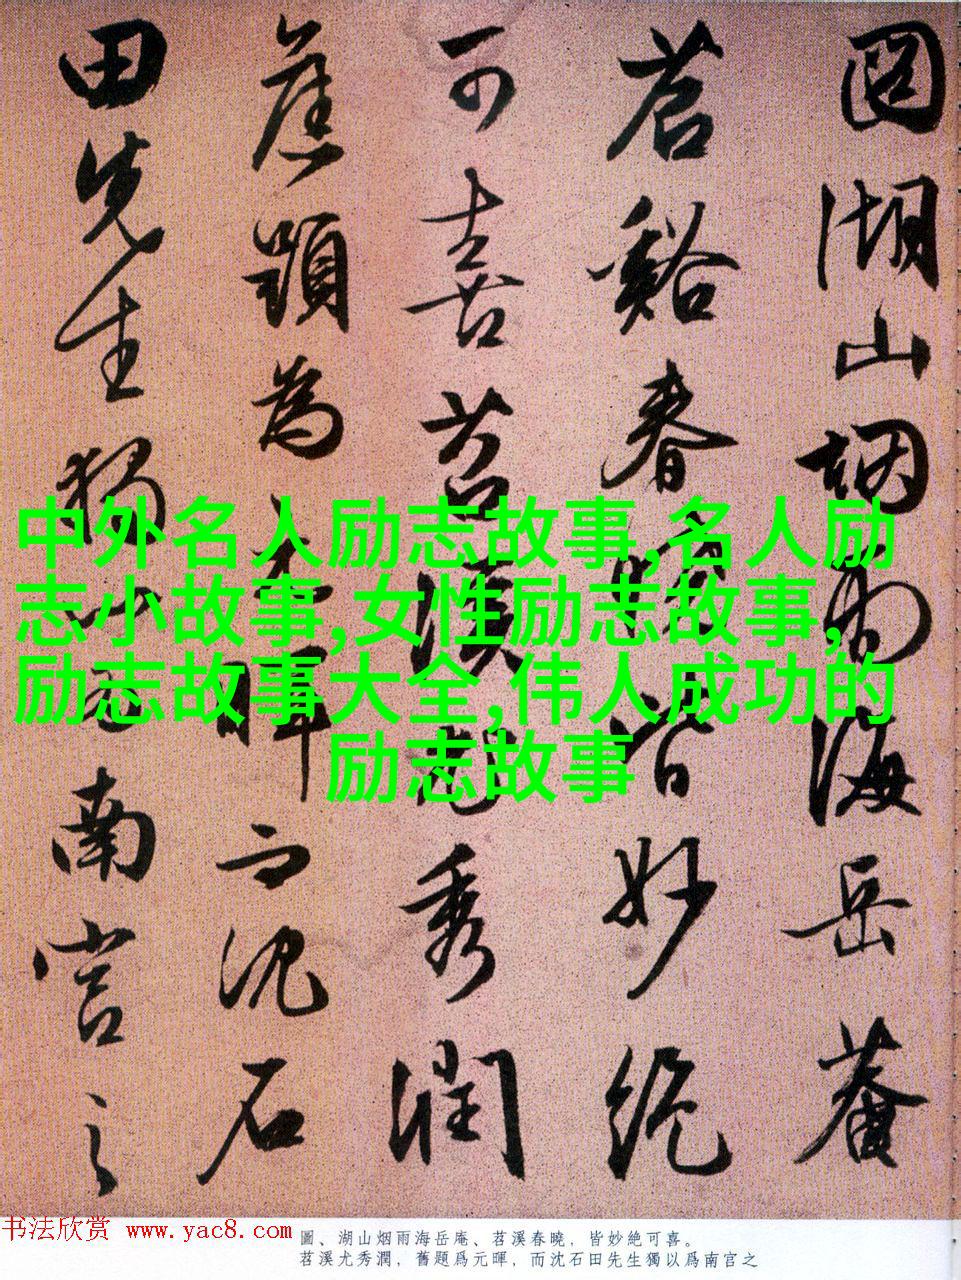 圖湖山烟雨海岳菴
苕谿春曉皆妙絶
可喜苕溪尤秀潤
舊題為元暉而沈石
田先生獨以為南宫之
中外名人励志故事,名人励
志小故事,女性励志故事,
励志故事大全,伟人成功的
励志故事
书法欣赏 www.yac8.com
圖、湖山烟雨海岳庵、苕溪春曉，皆妙絶可喜。
苕溪尤秀潤，舊題爲元暉，而沈石田先生獨以爲南宫之